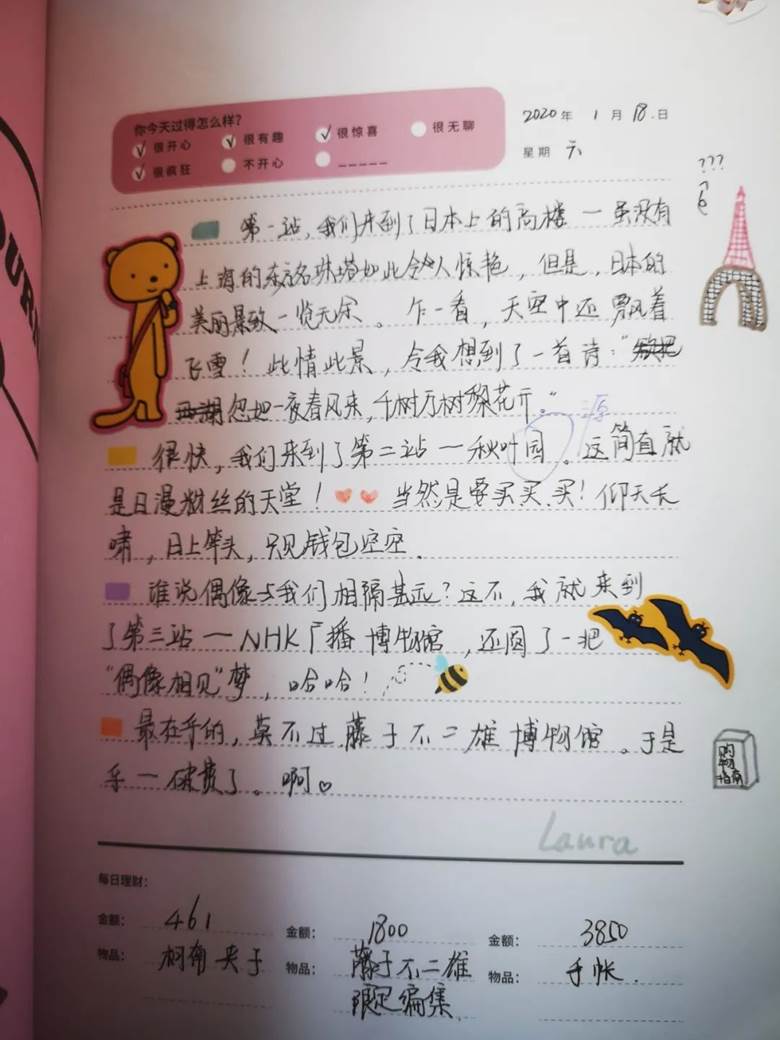 你今天过得怎么样?
很开心 很有趣 很惊喜 很无聊
很疯狂 不开心
2020年 1月18日
星期 天
???
第一站,我们来到了日本上的高楼一虽没有
上海的东方名珠塔如此令人惊艳,但是,日本的
美丽景致一览无余。乍一看,天空中还飘着
飞雪!此情此景,令我想到了一首诗:"欲把
西湖忽如一夜春风来,千树万树梨花开。"
源
很快,我们来到了第二站一秋叶园。这简直就
是日漫粉丝的天堂!当然是要买买、买!仰天长
啸,日上竿头,只见钱包空空.
谁说偶像与我们相隔甚远?这不,我就来到
了第三站一NHK广播博物馆,还圆了一把
"偶像相见"梦,哈哈!
最在乎的,莫不过藤子不二雄博物馆。于是
乎一破费了。啊
购物指南
Laura
每日理财:
金额: 461 金额: 1800 金额: 3850
物品: 夹子 物品: 藤子不二雄 物品: 手帐.
限定编集